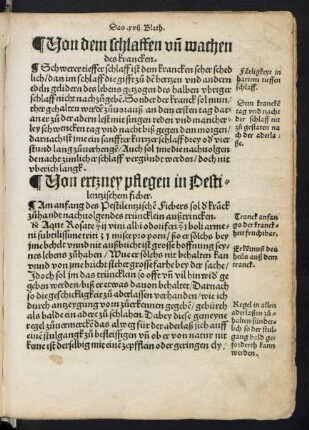 Das xvij Blath.
¶Von dem schlaffen vñ wachen
des krancken.
¶Schwerer tieffer schlaff ist dem krancken seher sched
lich/ dan im schlaff die gifft zů dē hertzen vnd andern
edeln gelidern des lebens gezogen
schlaff nicht nach zů gebē. Sonder der kranck sol mun
ther gehalten werdē zuuorauß an den ersten tag vnd
nacht zů der adern lest mit singen reden vnd mancher
ley schwencken tag vnd nacht biß gegen dem morgen/
darnach ist ime ein sanffter kurtzer schlaff
stund lang zů
den nacht zimlicher schlaff vergündt werden/ doch nit
vberich langk.
¶Von ertzney pflegen in Pesti-
lentzischen fieber.
¶Am anfang des Pestilentzischē Fiebers sol ď krāck
zů handt nachuolgendes trüncklein außtrincken.
me behelt vnnd nit außbricht ist grosse hoffnung sey
nes lebens zů haben/ Wu er solchs nit behalten kan
vnnd von ime bricht ist seher grosse farhe bey der sache/
Jdoch sol im das trüncklein so offt vñ vil hinwid ge
geben werden/ biß er etwas dauon behalte/ Darnach
so die geschicklikeit zů aderlassen verhanden/ wie ich
durch antzeygung vorn zů erkennen gegebē/ gebürth
als bald ein ader zů schlahen. Dabey diese gemeyne
regel zů uermerckē das alweg für der aderlaß sich auff
eine stulgangk zů befleissigen vñ ob er von natur nit
kome ist derselbig mit eine zepfflein oder geringen cly
Färligkeyt in
hartem tieffen
schlaff.
Dem kranckē
tag vnd nach
der schlaff nit
zů gestaten na
ch der aderla
ße.
Tranck anfan
gs der kranck
heit fruchtbar.
Erkēntnuß des
heils auß dem
tranck.
Regel in allen
aderlassen zů
halten sünder
lich so der stul
gang bald ge
forderth kann
werden.